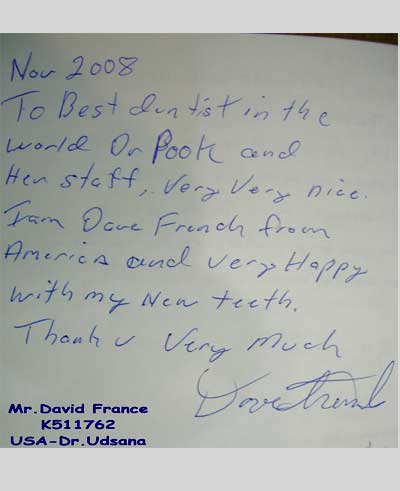 Nov 2008
To Best dentist in the
world Dr Pook and
Her staff, Very Very nice.
I am Dave French from
America and very Happy
with my New teeth.
Thank u Very Much
Dave French
Mr.David France
K511762
USA-Dr.Udsana